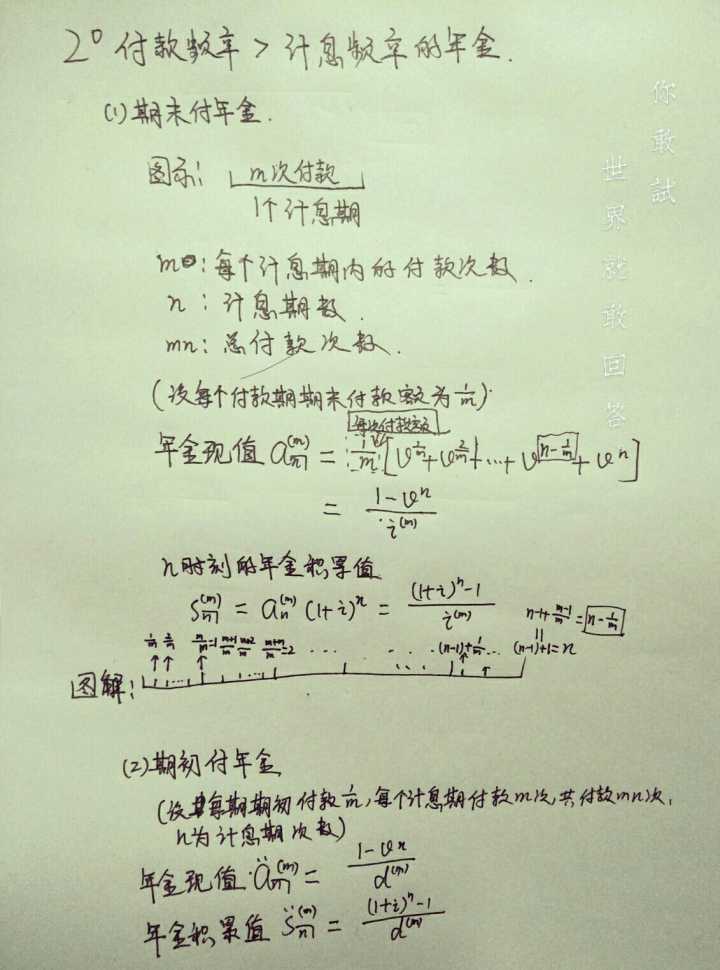 2° 付款频率 > 计息频率的年金.
(1) 期末付年金.
图示: m次付款
1个计息期
m: 每个计息期内的付款次数.
n: 计息期数.
mn: 总付款次数.
(设每个付款期期末付款额为 1/m).
每次付款额
年金现值 a_n̅|^(m) = 1/m [v^(1/m) + v^(2/m) + ... + v^(n-1/m) + v^n]
= (1-v^n)/i^(m)
n时刻的年金积累值
S_n̅|^(m) = a_n^(m) (1+i)^n = ((1+i)^n-1)/i^(m)
n-1+(m-1)/m = n-1/m
1/m 2/m m/m=1 (m+1)/m (m+2)/m (m+m)/m=2 ... ... (n-1)+1/m ... (n-1)+1=n
图解:
(2) 期初付年金
(设每期期初付款 1/m, 每个计息期付款m次, 共付款mn次,
n为计息期次数)
年金现值 ä_n̅|^(m) = (1-v^n)/d^(m)
年金积累值 S̈_n̅|^(m) = ((1+i)^n-1)/d^(m)
你敢試
世界就敢回答